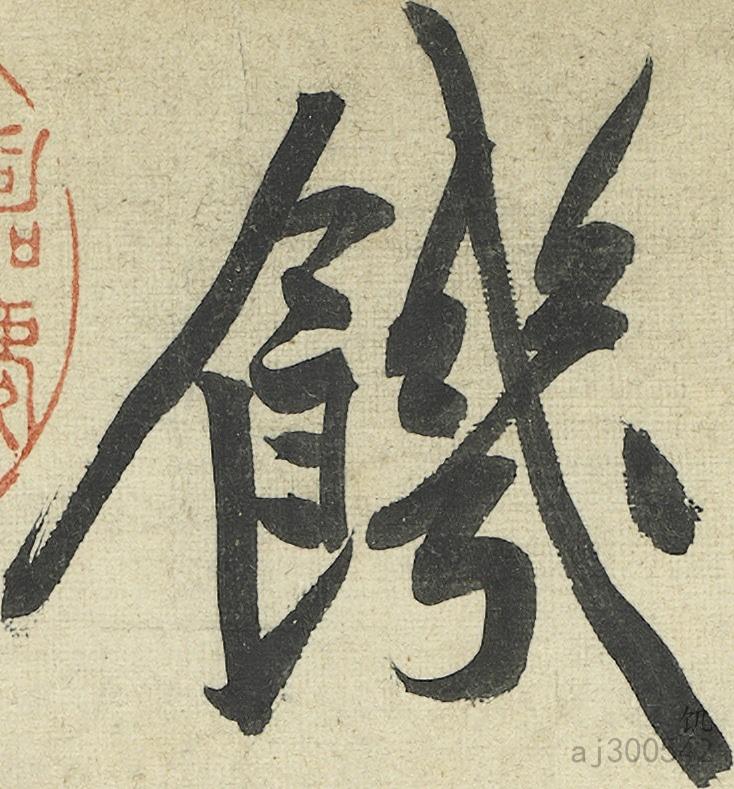 饑
饥
aj300542